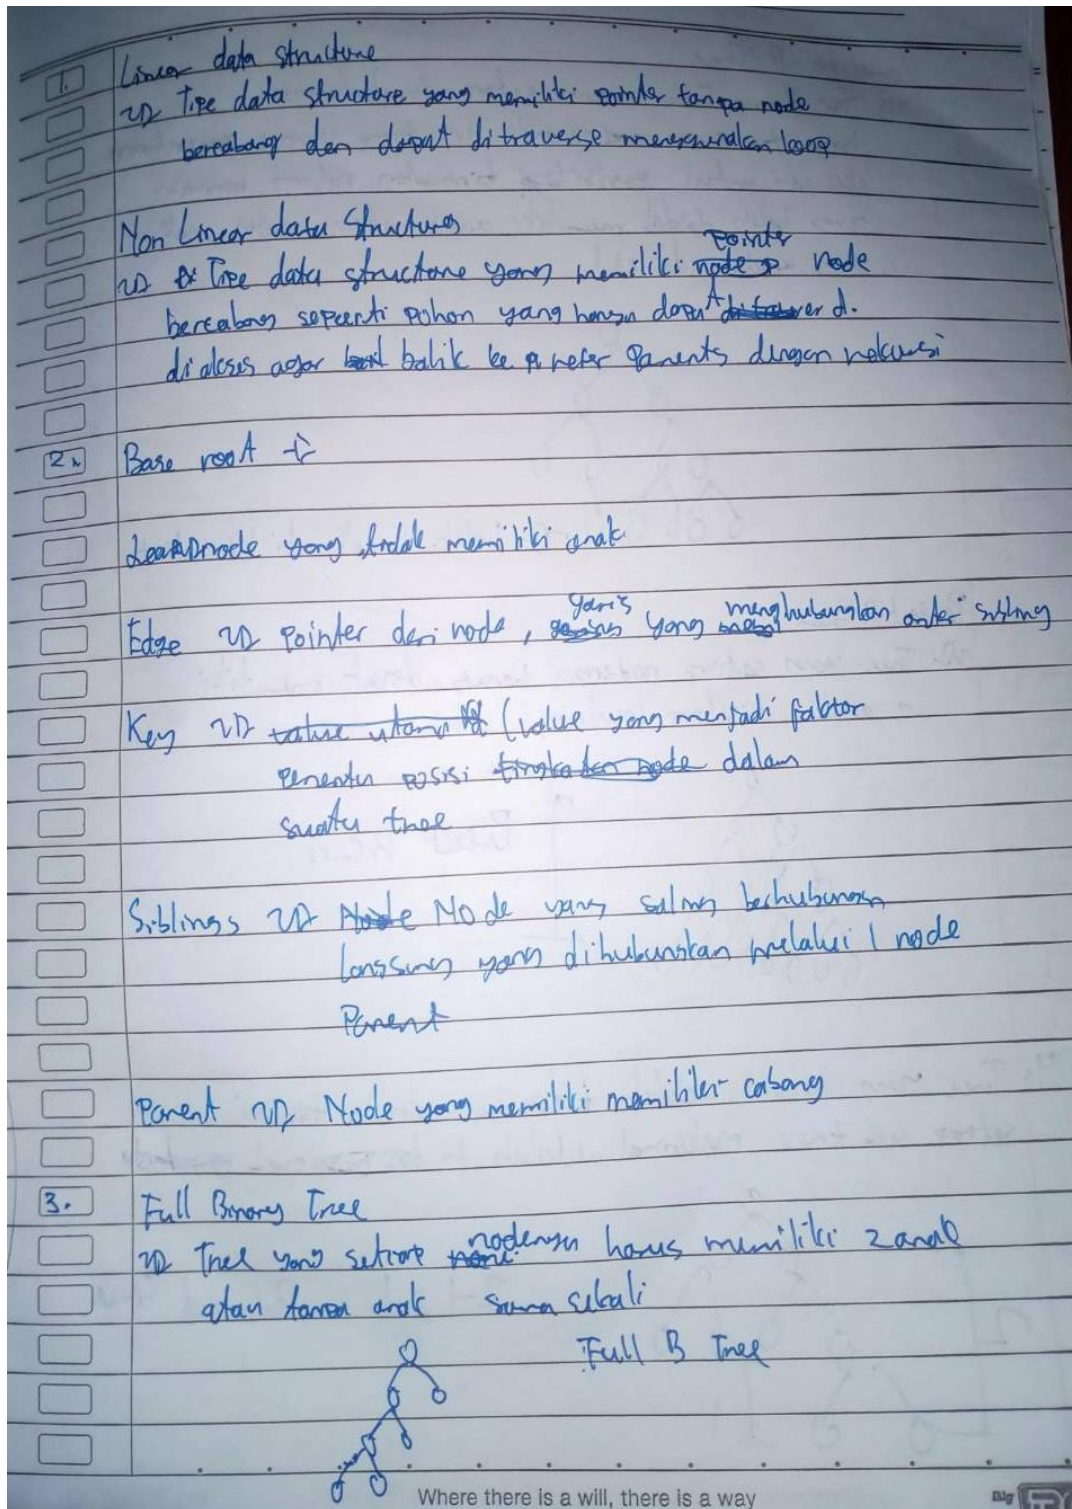 1. Linear data structure
Tipe data structure yang memiliki pointer tanpa node
bercabang dan dapat ditraverse menggunakan loop
Non Linear data Structures
Tipe data structure yang memiliki pointer node
bercabang seperti pohon yang hanya dapat
diakses agar balik ke refer Parents dengan rekursi
2. Base root
Leaf node yang tidak memiliki anak
Edge pointer dari node, garis yang menghubungkan antar sibling
Key (value yang menjadi faktor
penentu posisi dalam
suatu tree
Siblings Node yang saling berhubungan
langsung yang dihubungkan melalui 1 node
Parent
Parent Node yang memiliki memiliki cabang
3. Full Binary Tree
Tree yang setiap nodenya harus memiliki 2 anak
atau tanpa anak sama sekali
Full B Tree
Where there is a will, there is a way